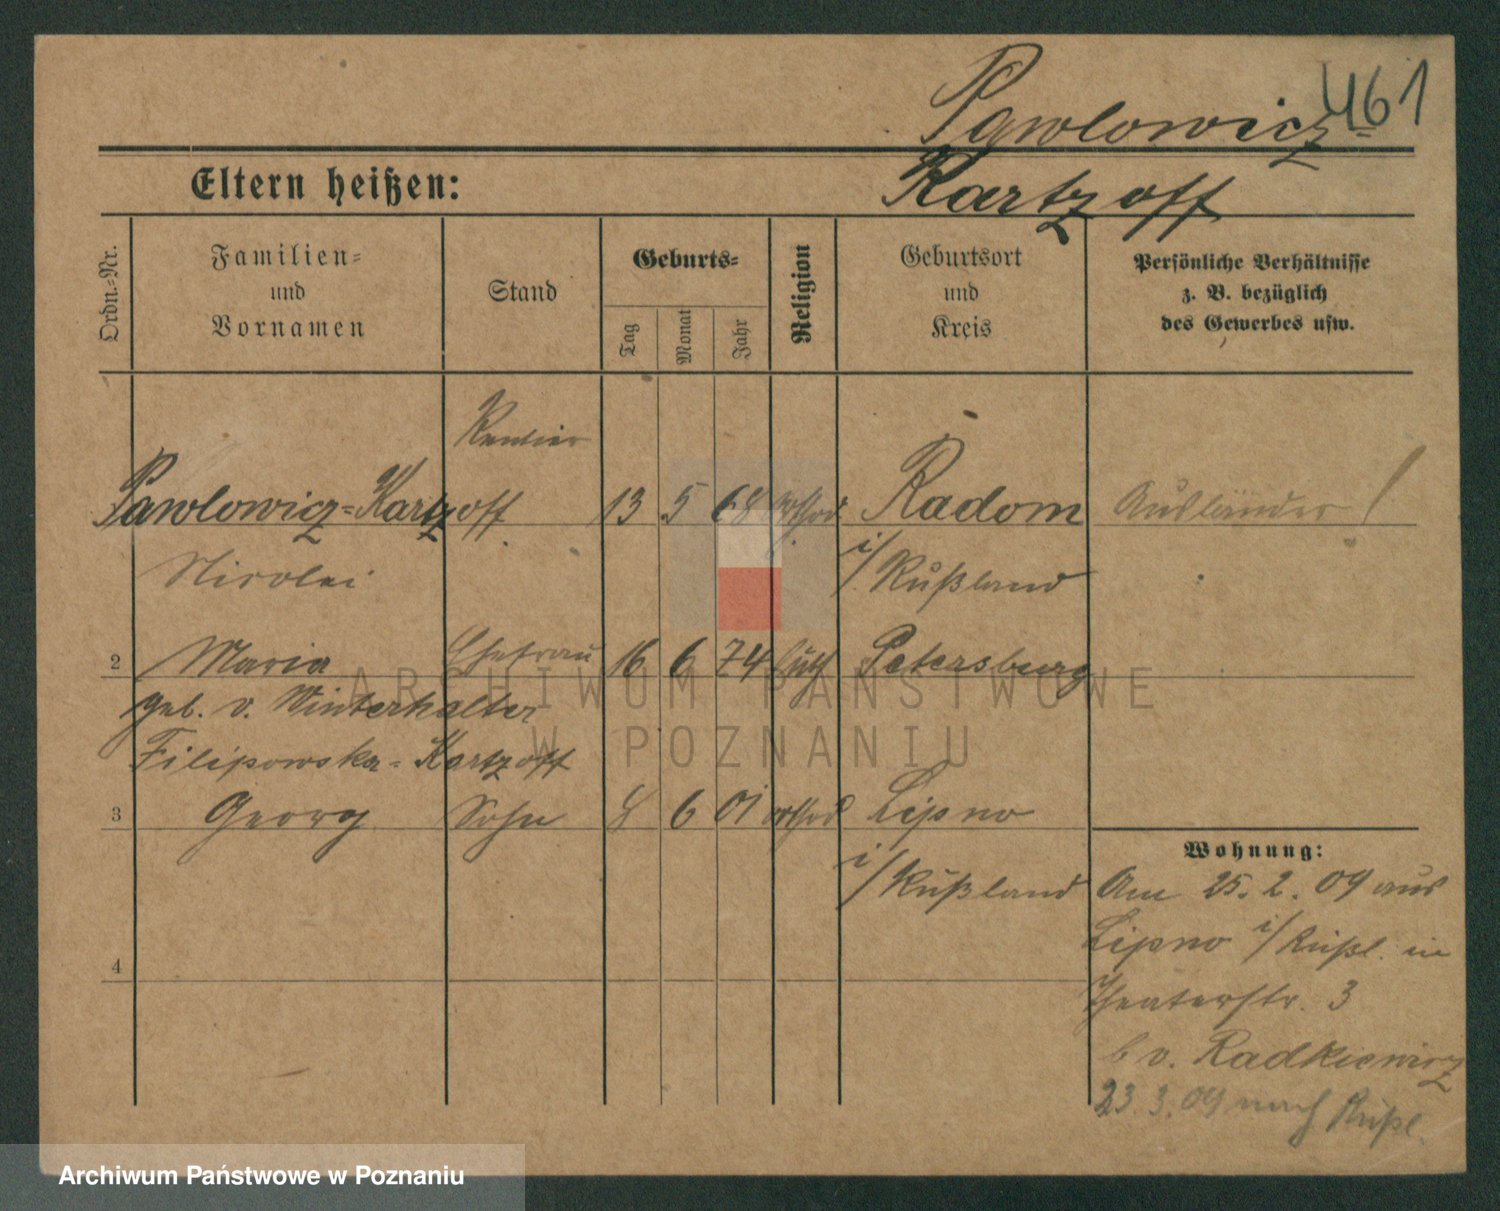 461
Pawlowicz-
Kartzoff
Eltern heißen:
Ordn.-Nr.
Familien-
und
Vornamen
Stand
Geburts-
Tag
Monat
Jahr
Religion
Geburtsort
und
Kreis
Persönliche Verhältnisse
z. B. bezüglich
des Gewerbes usw.
Rentier
Pawlowicz-Kartzoff 13 5 68 orthod Radom Ausländer!
Nicolei i/Rußland
2 Maria Ehefrau 16 6 74 luth Petersburg
geb. v. Winterhalter
Filipowska-Kartzoff
3 Georg Sohn 8 6 01 orthod Lipno
i/Rußland
4
Wohnung:
Am 25.2.09 aus
Lipno i/Rußl. in
Theaterstr. 3
b v. Radkiewicz
23.3.09 nach Rußl.
ARCHIWUM PAŃSTWOWE
W POZNANIU
Archiwum Państwowe w Poznaniu